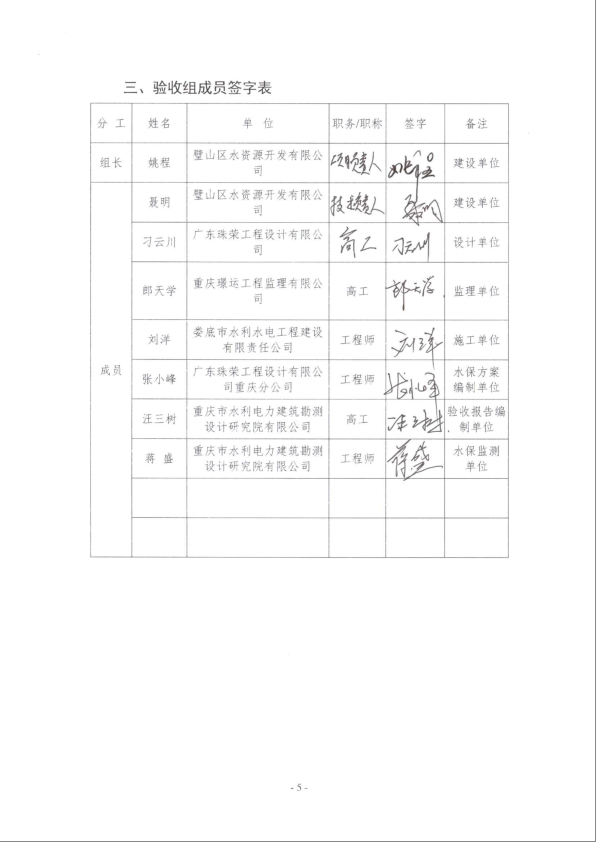 三、验收组成员签字表
分 工 姓名 单 位 职务/职称 签字 备注
组长 姚程 璧山区水资源开发有限公司 项目负责人 姚程 建设单位
成员
聂明 璧山区水资源开发有限公司 技术负责人 聂明 建设单位
刁云川 广东珠荣工程设计有限公司 高工 刁云川 设计单位
郎天学 重庆璟运工程监理有限公司 高工 郎天学 监理单位
刘洋 娄底市水利水电工程建设有限责任公司 工程师 刘洋 施工单位
张小峰 广东珠荣工程设计有限公司重庆分公司 工程师 张小峰 水保方案编制单位
汪三树 重庆市水利电力建筑勘测设计研究院有限公司 高工 汪三树 验收报告编制单位
蒋 盛 重庆市水利电力建筑勘测设计研究院有限公司 工程师 蒋盛 水保监测单位
- 5 -